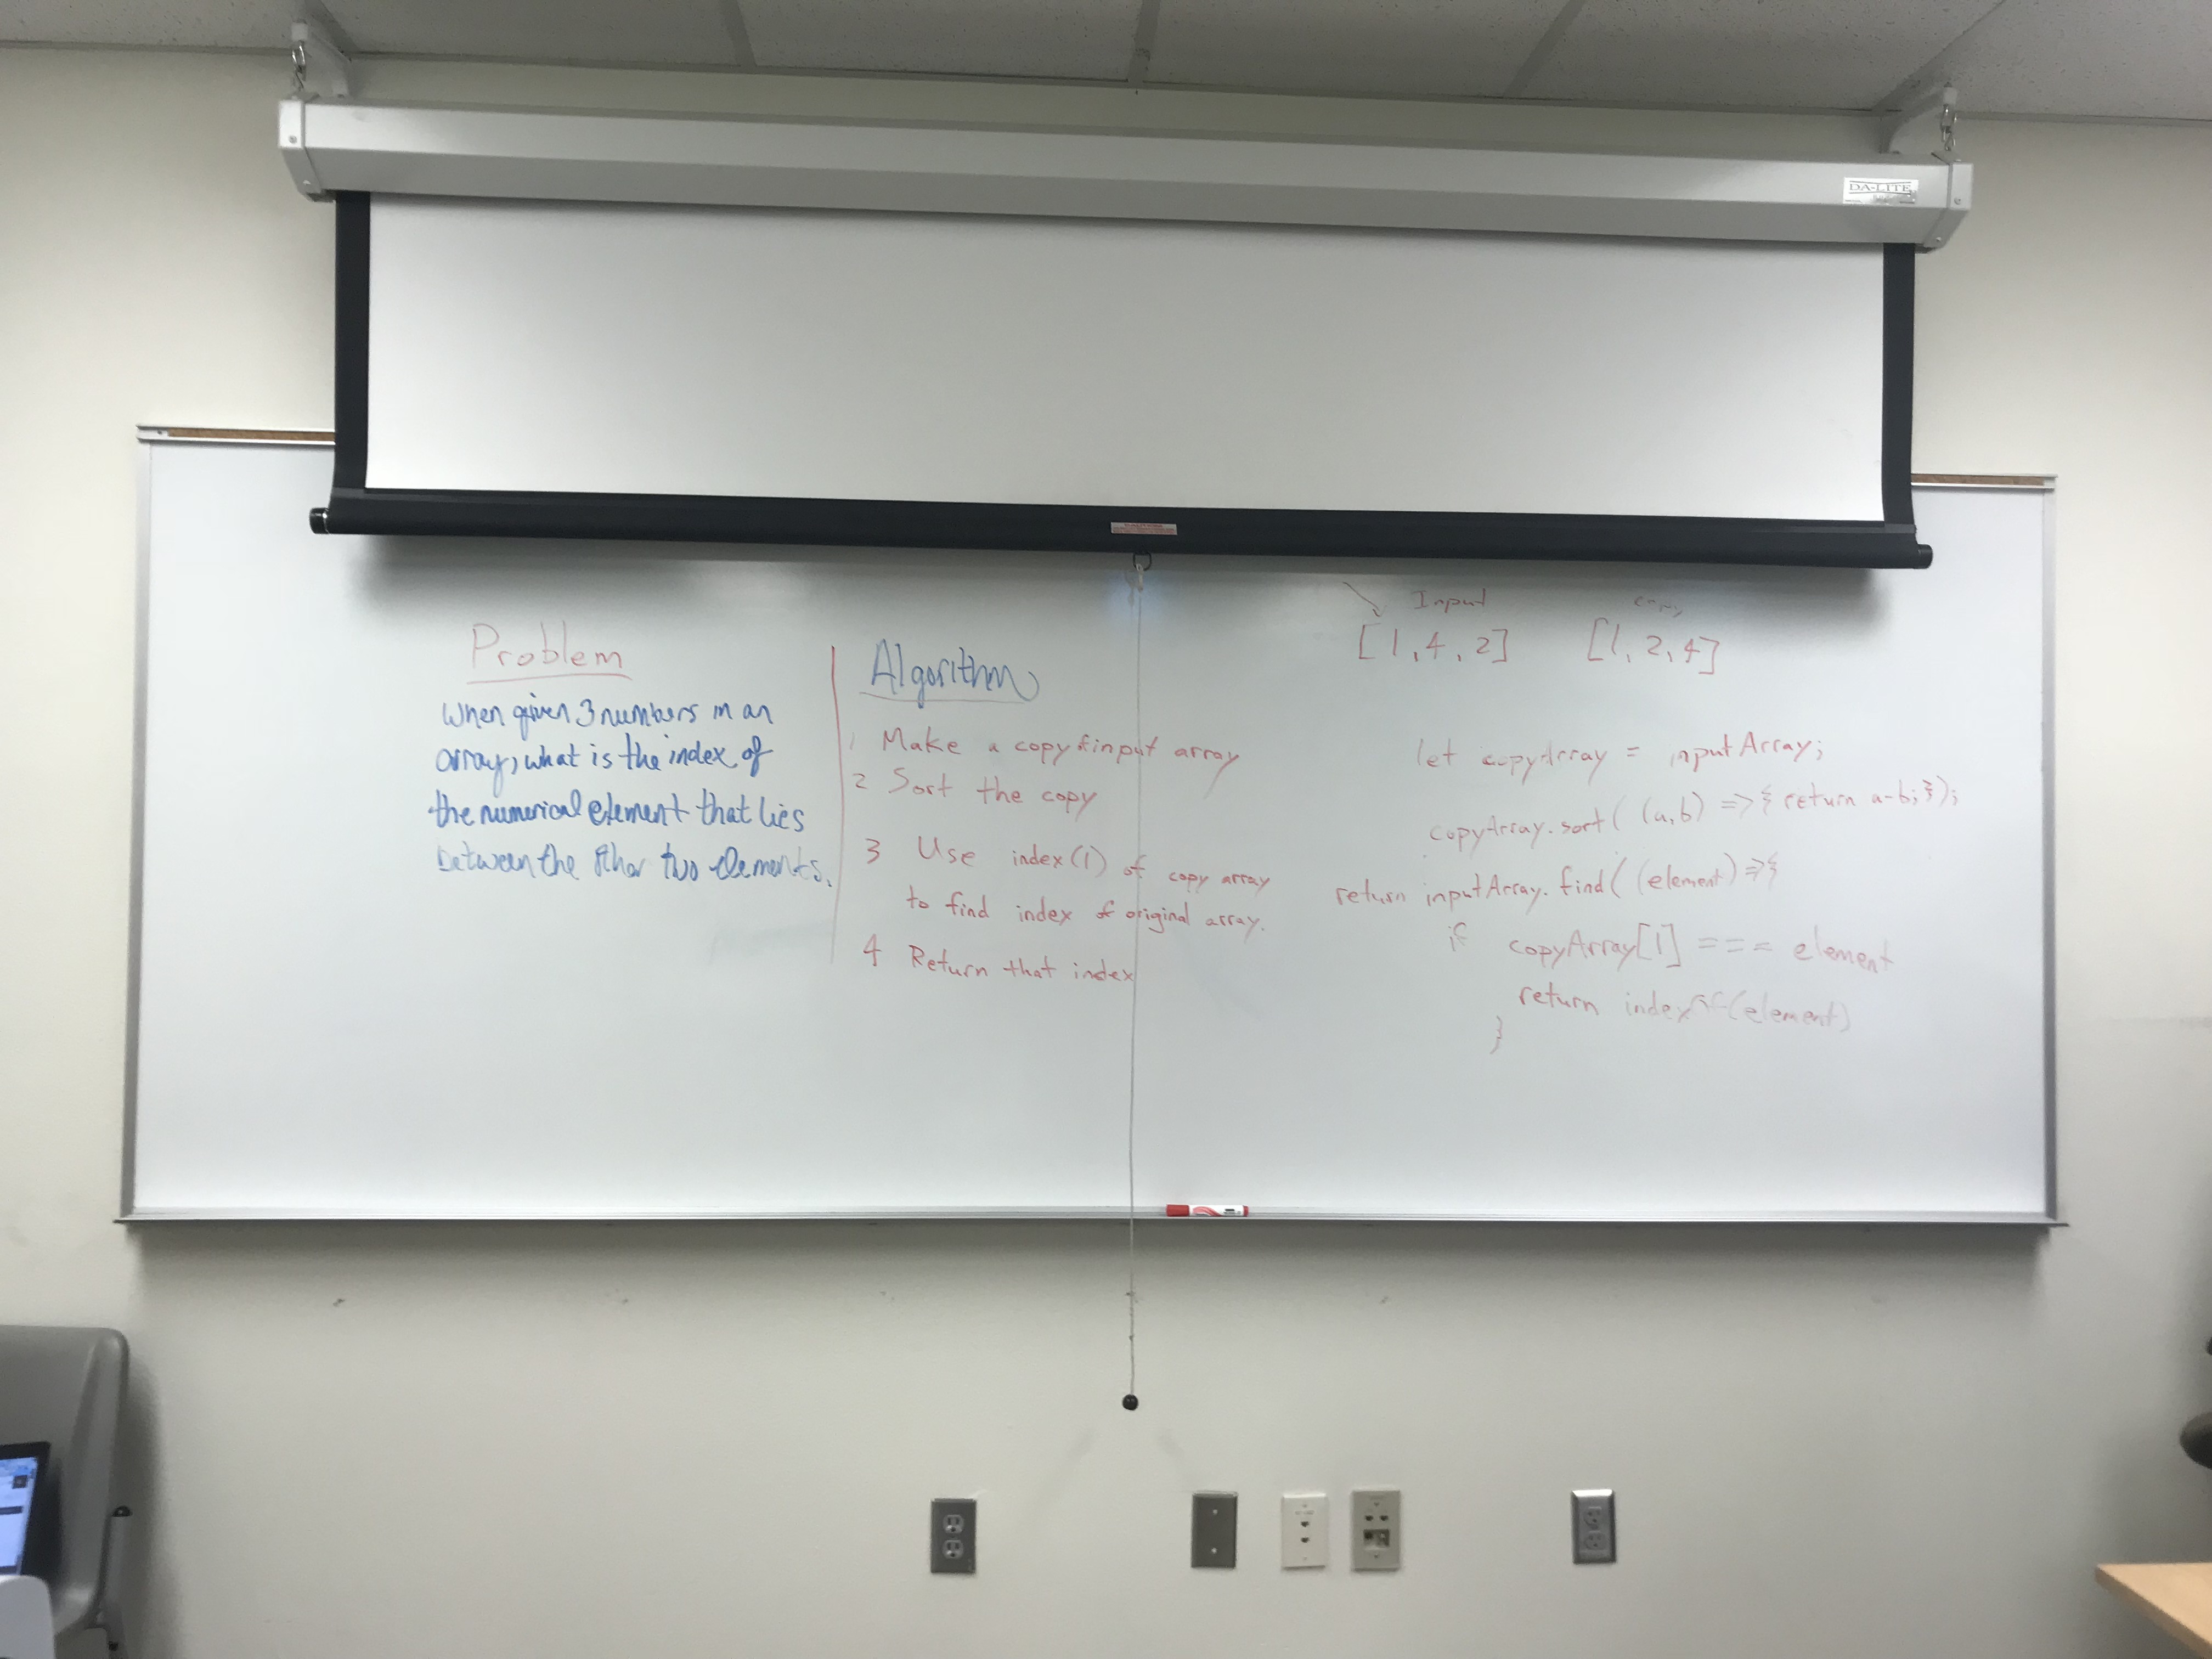 DA-LITE
Problem
When given 3 numbers in an
array, what is the index of
the numerical element that lies
between the other two elements.
Algorithm
1 Make a copy of input array
2 Sort the copy
3 Use index(1) of copy array
to find index of original array.
4 Return that index
Input copy
[1,4,2] [1,2,4]
let copyArray = inputArray;
copyArray.sort( (a,b) => { return a-b; });
return inputArray.find( (element) => {
if copyArray[1] === element
return indexOf(element)
}